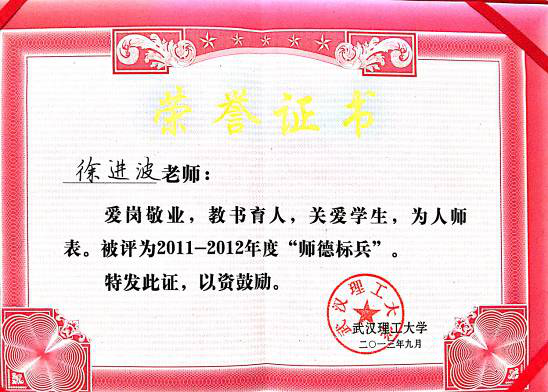 荣誉证书
徐进波老师：
爱岗敬业，教书育人，关爱学生，为人师
表。被评为2011-2012年度“师德标兵”。
特发此证，以资鼓励。
武汉理工大学
武汉理工大学
二〇一二年九月